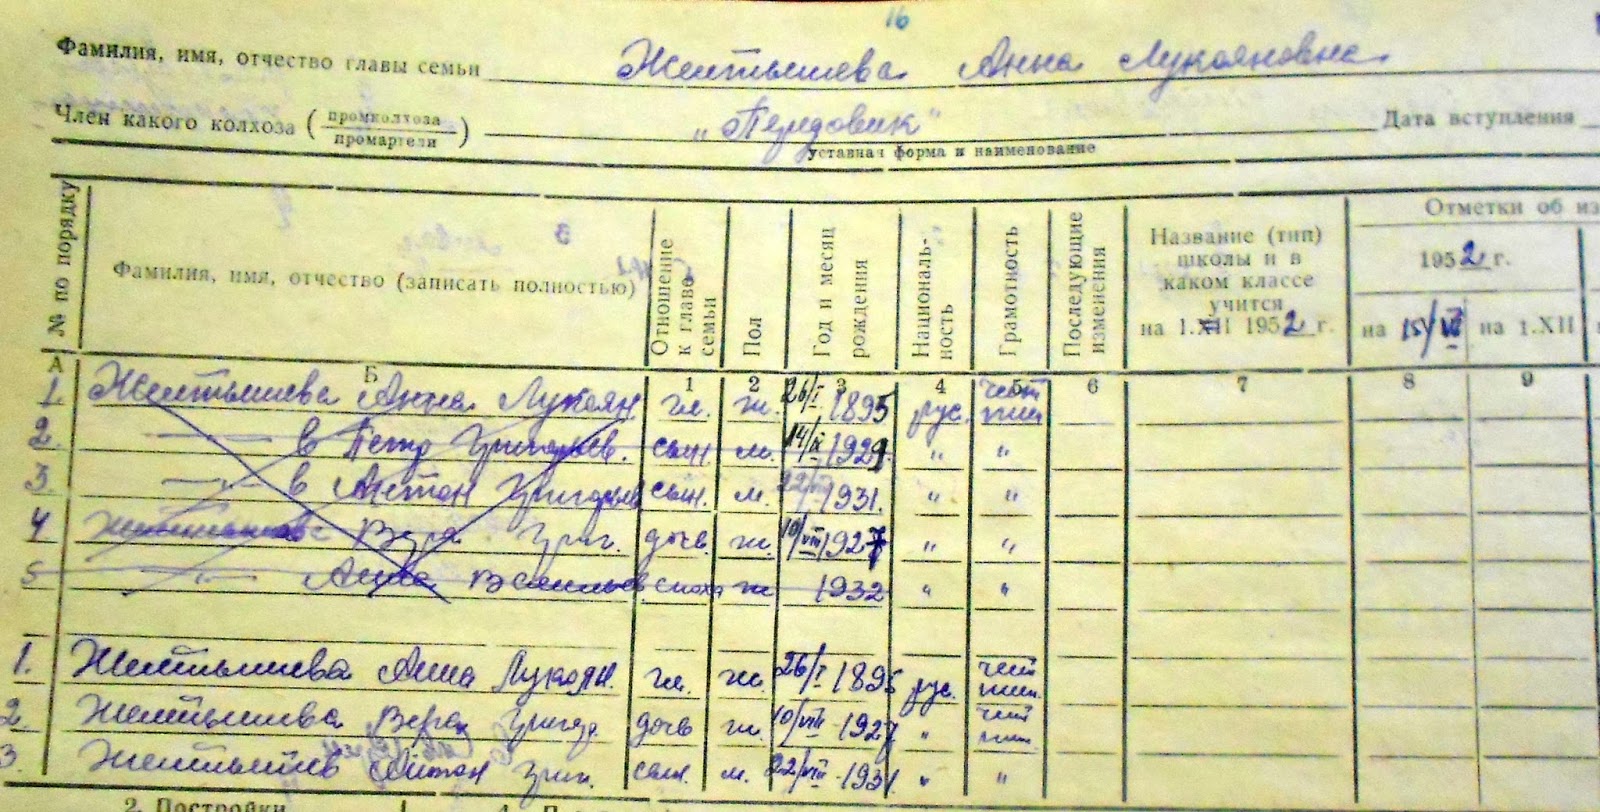 16
Фамилия, имя, отчество главы семьи Желтышева Анна Лукояновна
Член какого колхоза (промколхоза / промартели) „Передовик“ Дата вступления
уставная форма и наименование
№ по порядку
Фамилия, имя, отчество (записать полностью)
Отношение к главе семьи
Пол
Год и месяц рождения
Националь-ность
Грамотность
Последующие изменения
Название (тип) школы и в каком классе учится на 1.XII 1952 г.
Отметки об из
1952 г.
на 15/VI на 1.XII
А Б 1 2 3 4 5 6 7 8 9
1. Желтышева Анна Лукоян. гл. ж. 26/I 1895 рус. чит пиш
2. —〃— в Петр Григорьев. сын. м. 14/IX 1929. 〃 〃
3. —〃— в Антон Григорьев сын. м. 22/VII 1931. 〃 〃
4 Вера Григ. дочь. ж. 10/VIII 1927 〃 〃
5 —〃— Анна Васильев. сноха ж 1932 〃 〃
1. Желтышева Анна Лукоян. гл. ж. 26/I 1895 рус. чит пиш.
2. Желтышева Вера Григор. дочь ж. 10/VIII 1927 〃 чит пиш.
3. Желтышев Антон Григ. сын. м. 22/VII 1931. 〃 〃
2. Постройки